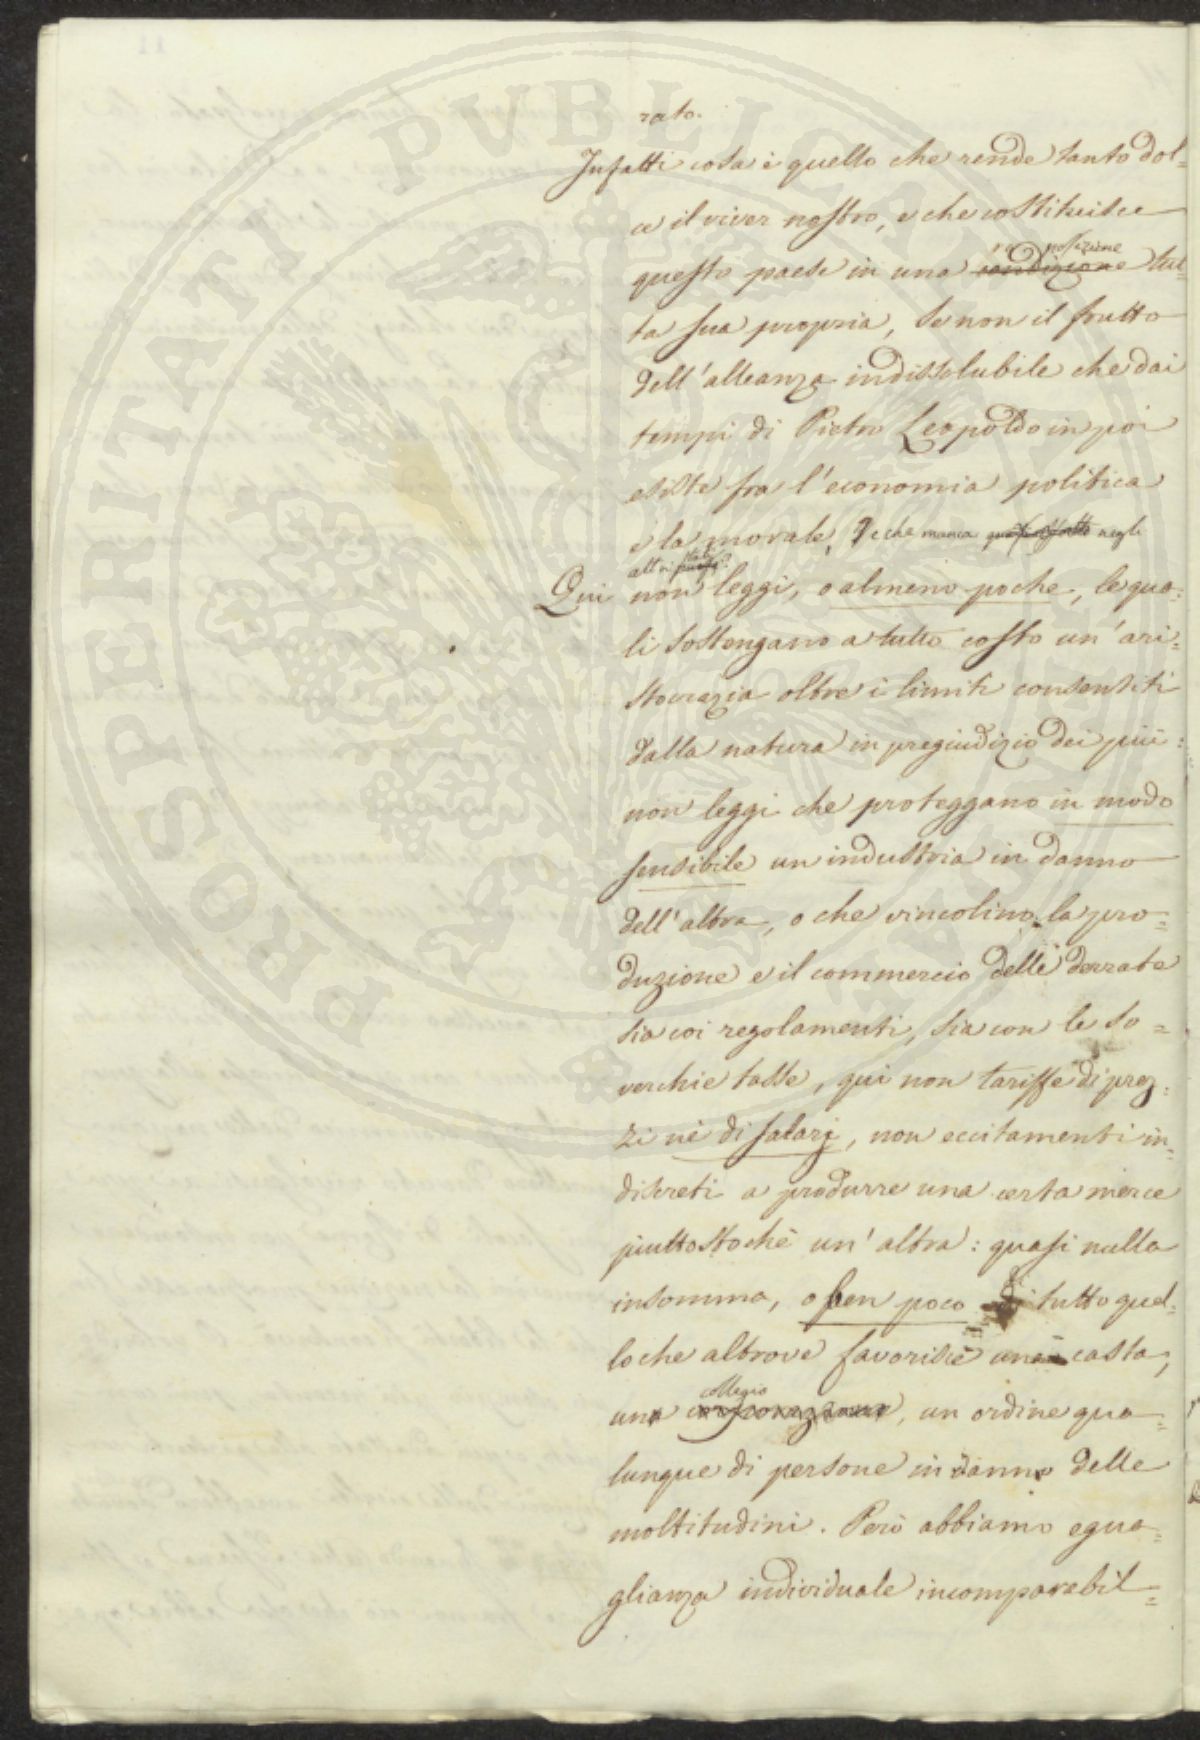 rato.
Infatti cosa è quello che rende tanto dol=
ce il viver nostro, e che costituisce
posizione
questo paese in una condizione tut=
ta sua propria, se non il frutto
dell'alleanza indissolubile che dai
tempi di Pietro Leopoldo in poi
esiste fra l'economia politica
e la morale, e che manca negli
altri
Qui non leggi, o almeno poche, le qua=
li sostengano a tutto costo un'ari=
stocrazia oltre i limiti consentiti
dalla natura in pregiudizio dei più:
non leggi che proteggano in modo
sensibile un industria in danno
dell'altra, o che vincolino la pro=
duzione e il commercio delle derrate
sia coi regolamenti, sia con le so=
verchie tasse, qui non tariffe di prez=
zi nè di salarj, non eccitamenti in=
discreti a produrre una certa merce
piuttostochè un'altra: quasi nulla
insomma, o ben poco di tutto quel=
lo che altrove favorisce una casta,
collegio
un corporazione, un ordine qua=
lunque di persone in danno delle
moltitudini. Però abbiamo egua=
glianza individuale incomparabil=
PROSPERITATI PVBLICAE